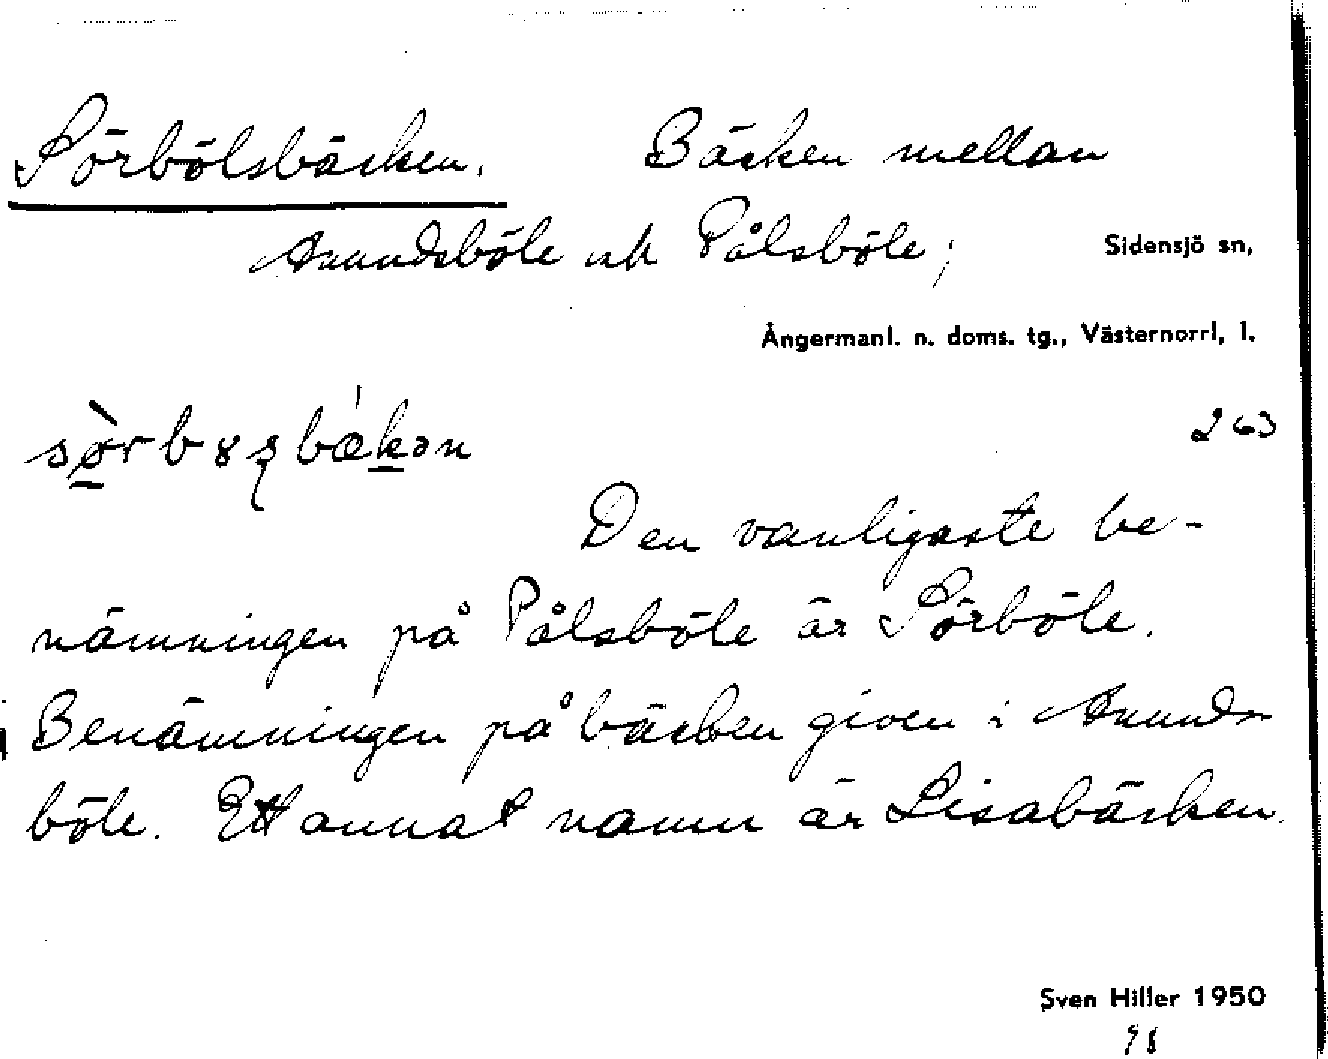 Sörbölsbäcken. Bäcken mellan
Anundsböle och Pålsböle; Sidensjö sn,
Ångermanl. n. doms. tg., Västernorrl, l.
263
Den vanligaste be-
nämningen på Pålsböle är Sörböle.
Benämningen på bäcken given i Anunds
böle. Ett annat namn är Lisabäcken.
Sven Hiller 1950